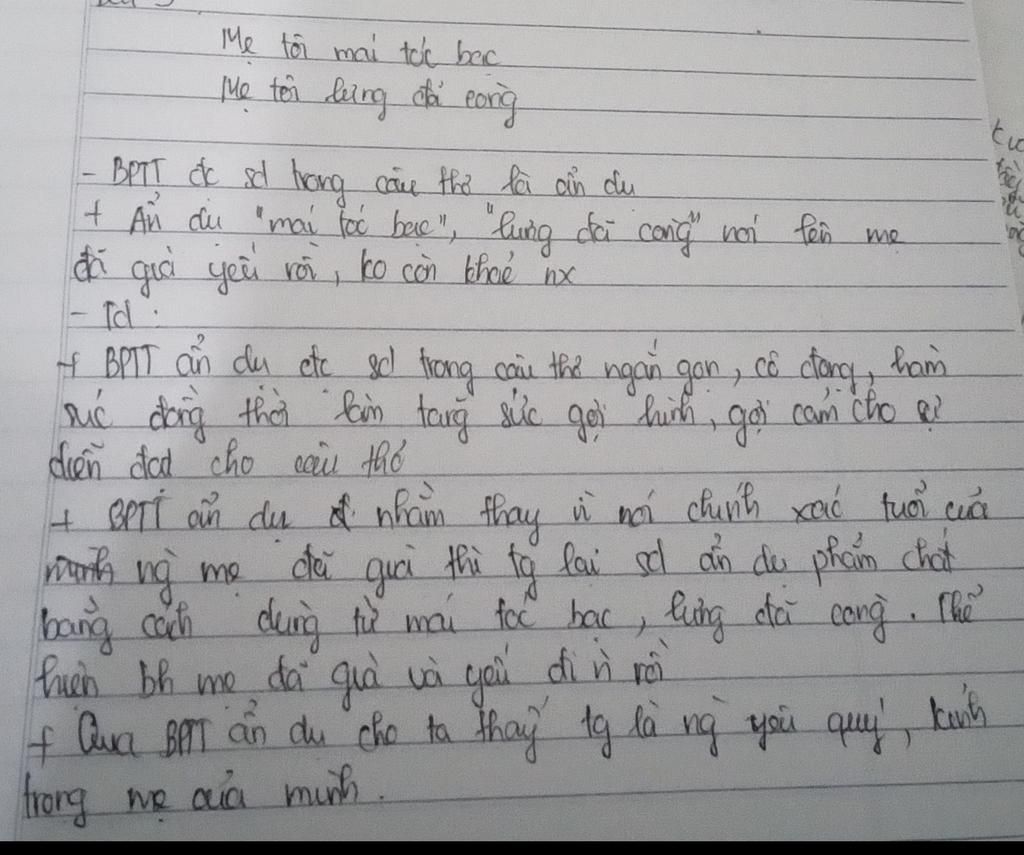 Mẹ tôi mái tóc bạc
Mẹ tôi lưng đã còng
- BPTT đc sd trong câu thơ là ẩn dụ
+ Ẩn dụ "mái tóc bạc", "lưng đã còng" nói lên mẹ
đã già yếu rồi, ko còn khoẻ nx
- Td :
+ BPTT ẩn dụ đc sd trong câu thơ ngắn gọn, cô đọng, hàm
súc đồng thời làm tăng sức gợi hình, gợi cảm cho sự
diễn đạt cho câu thơ
+ BPTT ẩn dụ nhằm thay vì nói chính xác tuổi của
ng mẹ đã già thì tg lại sd ẩn dụ phẩm chất
bằng cách dùng từ mái tóc bạc, lưng đã còng. Thể
hiện bh mẹ đã già và yếu đi n rồi
+ Qua BPTT ẩn dụ cho ta thấy tg là ng yêu quý, kính
trọng mẹ của mình.